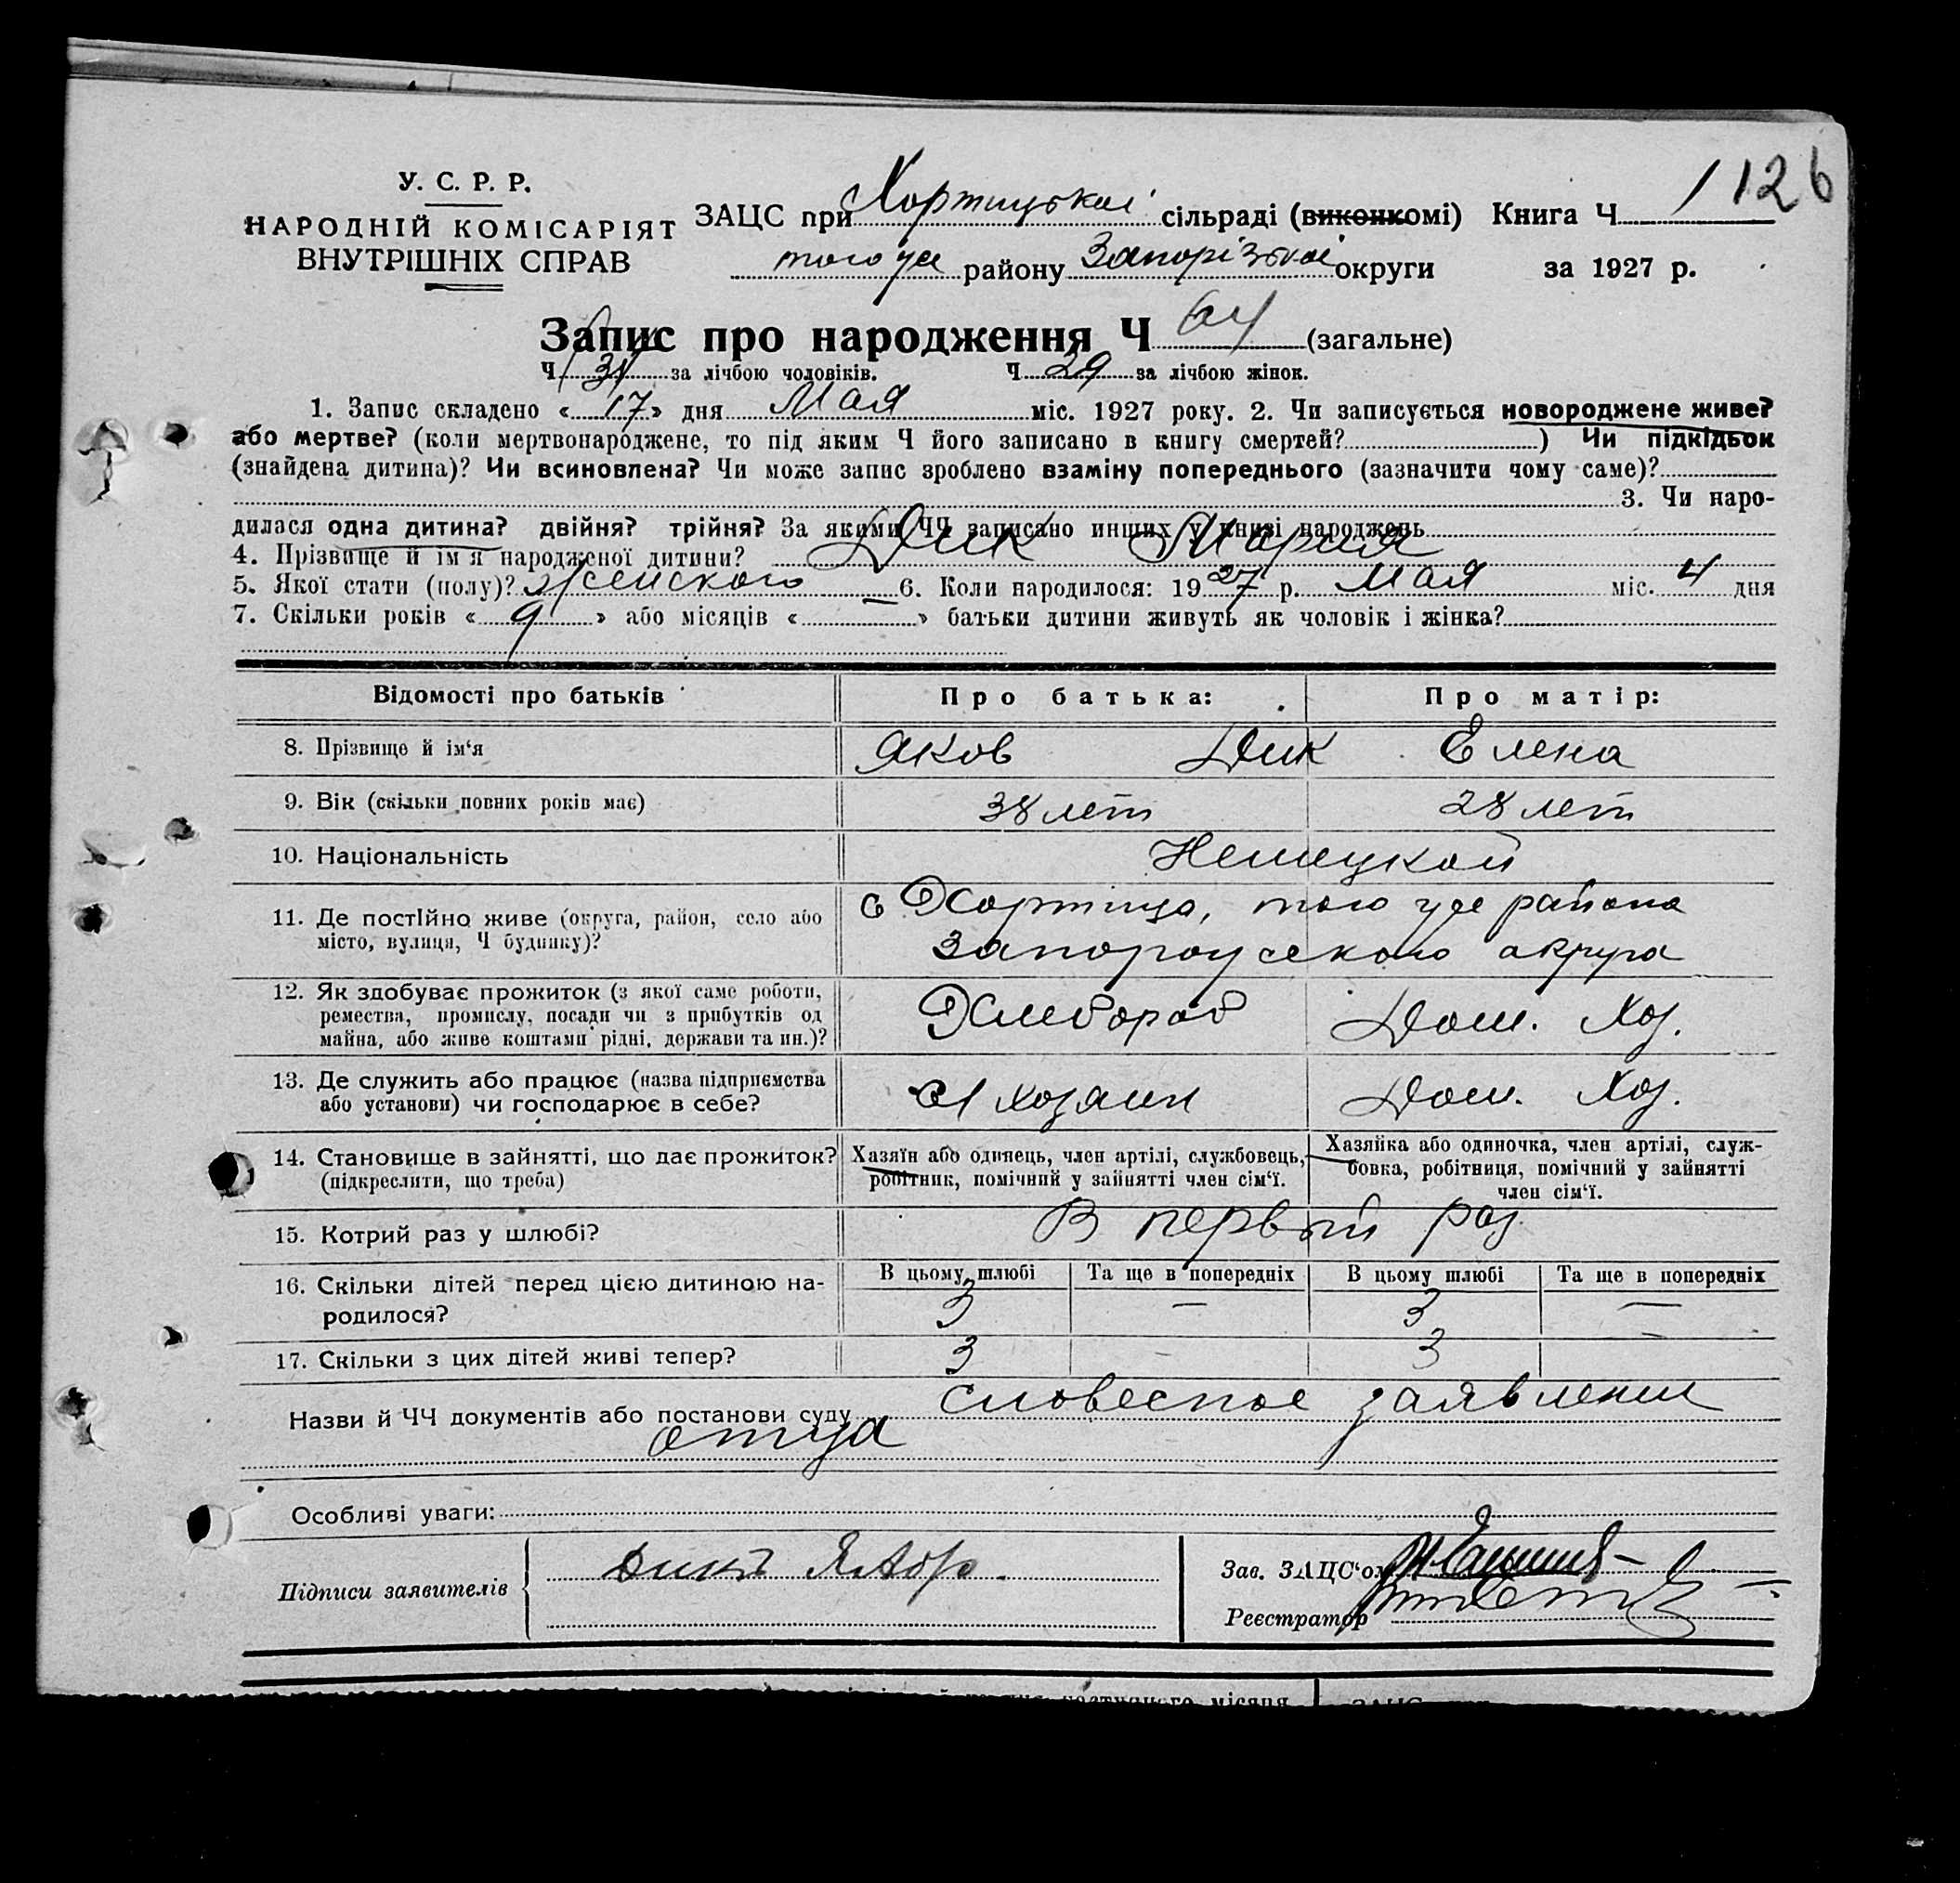 У. С. Р. Р.
НАРОДНІЙ КОМІСАРІЯТ
ВНУТРІШНІХ СПРАВ
126
ЗАЦС при Хортицької сільраді (виконкомі) Книга Ч 1
того же району Запорізької округи за 1927 р.
Запис про народження Ч 64 (загальне)
Ч за лічбою чоловіків. Ч 29 за лічбою жінок.
1. Запис складено «17» дня Мая міс. 1927 року. 2. Чи записується новороджене живе?
або мертве? (коли мертвонароджене, то під яким Ч його записано в книгу смертей? ) Чи підкідьок
(знайдена дитина)? Чи всиновлена? Чи може запис зроблено взаміну попереднього (зазначити чому саме)?
3. Чи наро-
дилася одна дитина? двійня? трійня? За якими ЧЧ записано инших у книзі народжень
4. Прізвище й ім'я народженої дитини? Дик Мария
5. Якої стати (полу)? Женского 6. Коли народилося: 1927 р. Мая міс. 4 дня
7. Скільки років «9» або місяців «—» батьки дитини живуть як чоловік і жінка?
Відомості про батьків Про батька: Про матір:
8. Прізвище й ім'я Яков Дик Елена
9. Вік (скільки повних років має) 38 лет 28 лет
10. Національність Немецкой
11. Де постійно живе (округа, район, село або с Хортица, того же района
місто, вулиця, Ч будинку)? Запорожского округа
12. Як здобуває прожиток (з якої саме роботи,
ремества, промислу, посади чи з прибутків од Хлебороб Дом. Хоз.
майна, або живе коштами рідні, держави та ин.)?
13. Де служить або працює (назва підприємства
або установи) чи господарює в себе? хозяин Дом. Хоз.
14. Становище в зайнятті, що дає прожиток? Хазяїн або одинець, член артілі, службовець, Хазяйка або одиночка, член артілі, служ-
(підкреслити, що треба) робітник, помічний у зайнятті член сім'ї. бовка, робітниця, помічний у зайнятті
член сім'ї.
15. Котрий раз у шлюбі? В первый раз
16. Скільки дітей перед цією дитиною на- В цьому шлюбі Та ще в попередніх В цьому шлюбі Та ще в попередніх
родилося? 3 — 3 —
17. Скільки з цих дітей живі тепер? 3 — 3 —
Назви й ЧЧ документів або постанови суду словесное заявление
отца
Особливі уваги:
Підписи заявителів Дикъ
Зав. ЗАЦС'ом
Реєстратор